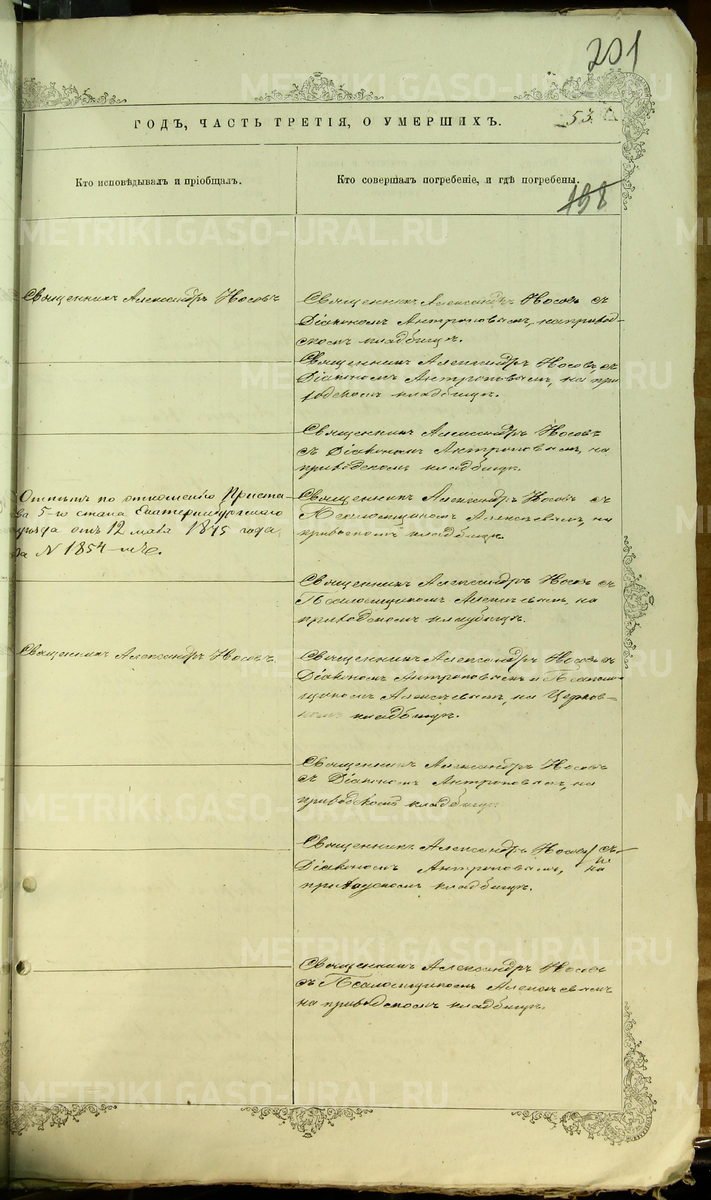 201
ГОДЪ, ЧАСТЬ ТРЕТІЯ, О УМЕРШИХЪ.
53
Кто исповѣдывалъ и пріобщалъ.
Кто совершалъ погребеніе, и гдѣ погребены.
198
Священникъ Александръ Носовъ
Священникъ Александръ Носовъ съ
Діакономъ Антроповымъ, на приход-
скомъ кладбищѣ.
Священникъ Александръ Носовъ съ
Діакономъ Антроповымъ, на при
ходскомъ кладбищѣ.
Священникъ Александръ Носовъ
съ Діакономъ Антроповымъ, на
приходскомъ кладбищѣ.
Отпѣтъ по отношенію Приста-
ва 5-го стана Екатеринбургскаго
уѣзда отъ 12 мая 1875 года
за N 1854-мъ.
Священникъ Александръ Носовъ съ
Псаломщикомъ Алексѣевымъ, на
приходскомъ кладбищѣ.
Священникъ Александръ Носовъ съ
Псаломщикомъ Алексѣевымъ, на
приходскомъ кладбищѣ.
Священникъ Александръ Носовъ.
Священникъ Александръ Носовъ съ
Діакономъ Антроповымъ и Псалом-
щикомъ Алексѣевымъ, на Церков-
номъ кладбищѣ.
Священникъ Александръ Носовъ
съ Діакономъ Антроповымъ, на
приходскомъ кладбищѣ.
Священникъ Александръ Носовъ съ
Діакономъ Антроповымъ, на
приходскомъ кладбищѣ.
Священникъ Александръ Носовъ
съ Псаломщикомъ Алексѣевымъ
на приходскомъ кладбищѣ.
METRIKI.GASO-URAL.RU